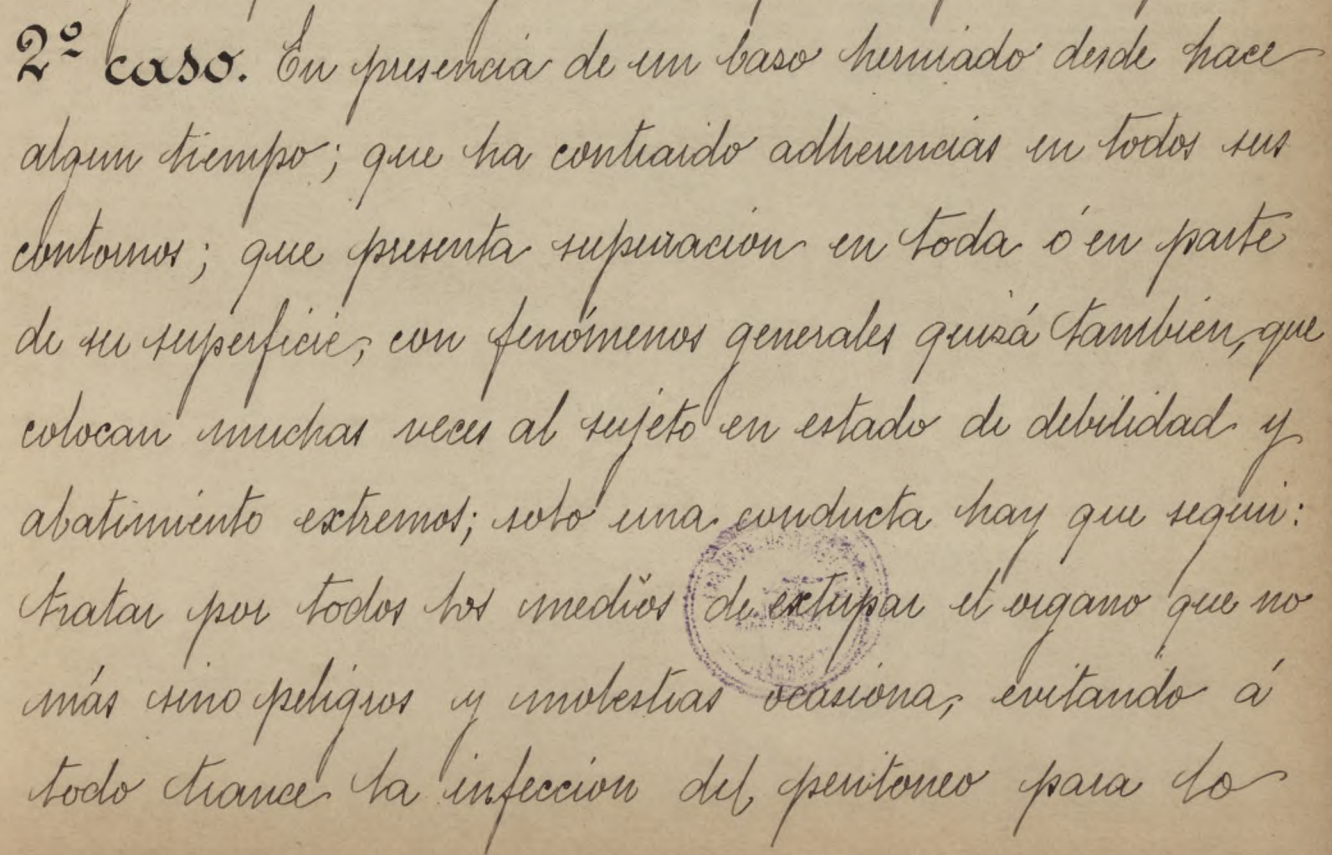 2º caso. En presencia de un baso herniado desde hace
algun tiempo; que ha contraido adherencias en todos sus
contornos; que presenta supuracion en toda ó en parte
de su superficie; con fenómenos generales quizá tambien, que
colocan muchas veces al sujeto en estado de debilidad y
abatimiento extremos; solo una conducta hay que seguir:
tratar por todos los medios de extirpar el organo que no
más sino peligros y molestias ocasiona, evitando á
todo trance la infeccion del peritoneo para lo